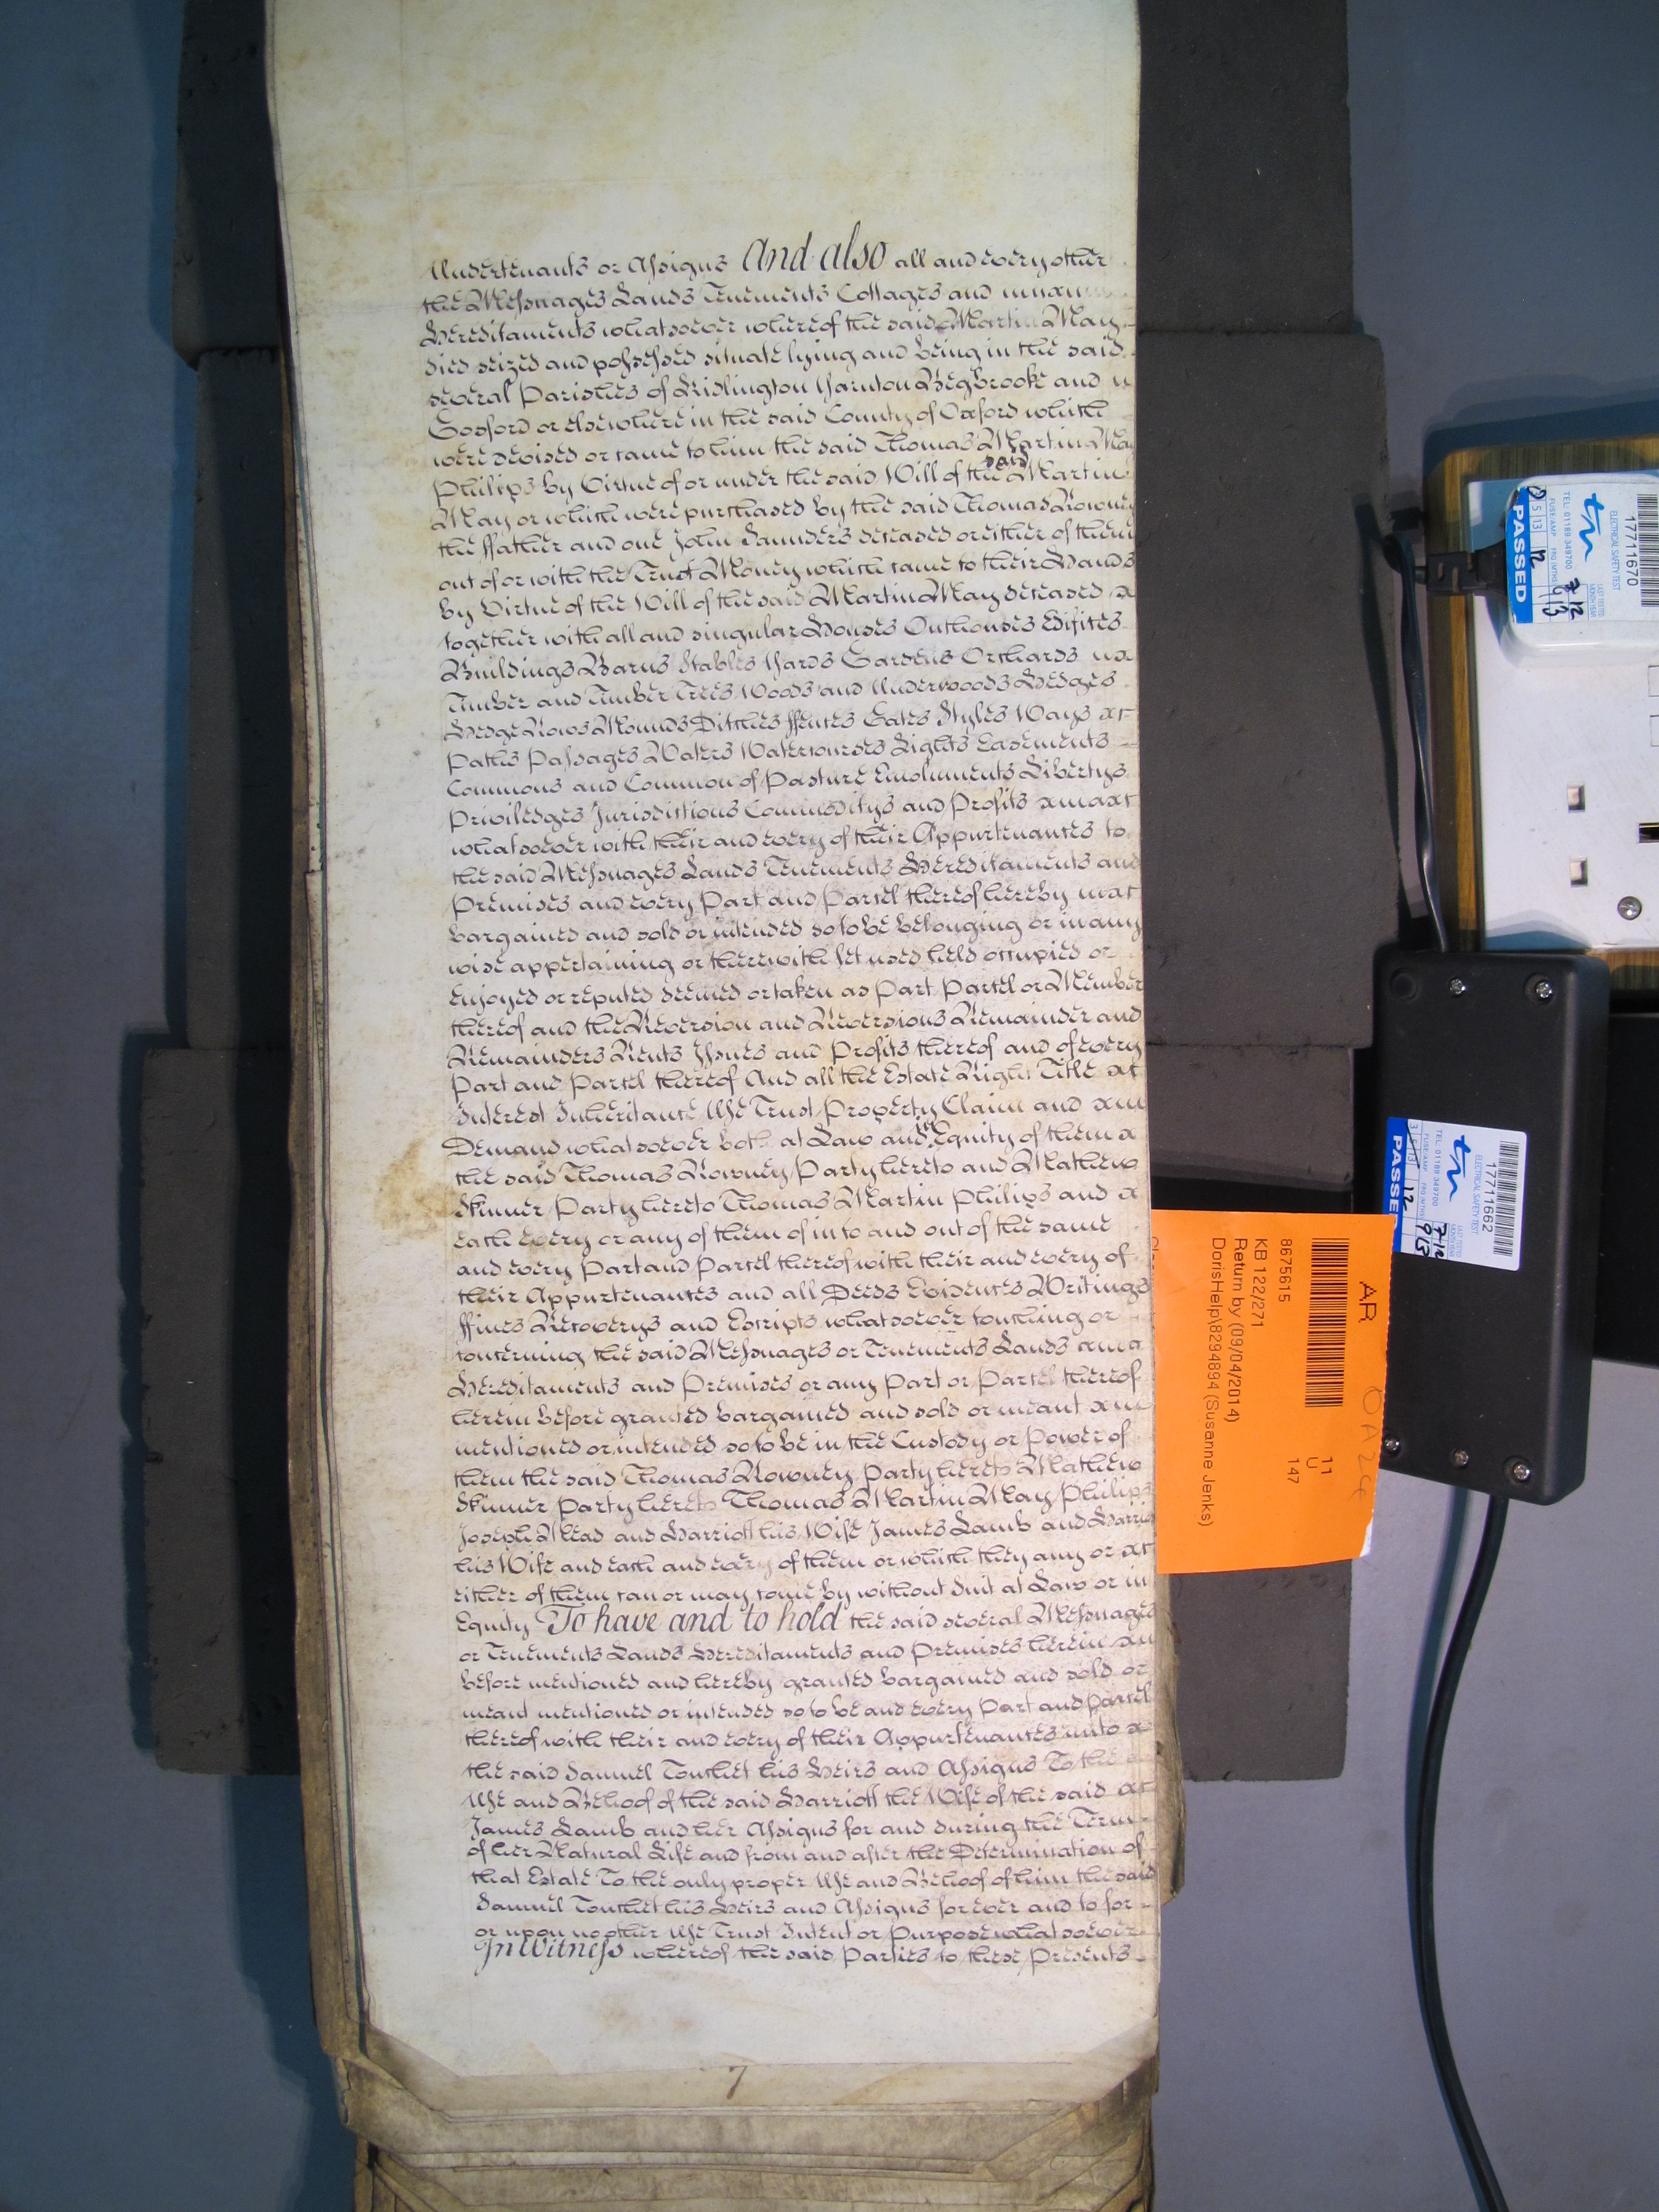 Undertenants or Assigns And also all and every other
the Messuages Lands Tenements Cottages and
Hereditaments whatsoever whereof the said Martin May
died seized and possessed situate lying and being in the said
several Parishes of Kidlington Yarnton Begbrooke and
Gosford or elsewhere in the said County of Oxford which
were devised or came to him the said Thomas Martin May
Philips by Virtue of or under the said Will of the said Martin
May or which were purchased by the said Thomas Rowney
the ffather and one John Saunders deceased or either of them
out of or with the Trust Money which came to their Hands
by Virtue of the Will of the said Martin May deceased
together with all and singular Houses Outhouses Edifices
Buildings Barns Stables Yards Gardens Orchards
Timber and Timber Trees Woods and Underwoods Hedges
Hedge Rows Mounds Ditches ffences Gates Styles Ways
Paths Passages Waters Watercourses Lights Easements
Commons and Common of Pasture Emoluments Libertys
Priviledges Jurisdictions Commoditys and Profits
whatsoever with their and every of their Appurtenances to
the said Messuages Lands Tenements Hereditaments and
Premises and every Part and Parcel thereof hereby
bargained and sold or intended so to be belonging or in any
wise appertaining or therewith let used held occupied or
enjoyed or reputed deemed or taken as Part Parcel or Member
thereof and the Reversion and Reversions Remainder and
Remainders Rents Issues and Profits thereof and of every
Part and Parcel thereof And all the Estate Right Title
Interest Inheritance Use Trust Property Claim and
Demand whatsoever both at Law and in Equity of them
the said Thomas Rowney Party hereto and Mathew
Skinner Party hereto Thomas Martin Philips and
each every or any of them of in to and out of the same
and every Part and Parcel thereof with their and every of
their Appurtenances and all Deeds Evidences Writings
ffines Recoverys and Escripts whatsoever touching or
concerning the said Messuages or Tenements Lands
Hereditaments and Premises or any Part or Parcel thereof
herein before granted bargained and sold or meant
mentioned or intended so to be in the Custody or Power of
them the said Thomas Rowney Party hereto Mathew
Skinner Party hereto Thomas Martin May Philips
Joseph Mead and Harriott his Wife James Lamb and Harriott
his Wife and each and every of them or which they any or
either of them can or may come by without Suit at Law or in
Equity To have and to hold the said several Messuages
or Tenements Lands Hereditaments and Premises herein
before mentioned and hereby granted bargained and sold or
meant mentioned or intended so to be and every Part and Parcel
thereof with their and every of their Appurtenances unto
the said Samuel Touchet his Heirs and Assigns To the
Use and Behoof of the said Harriott the Wife of the said
James Lamb and her Assigns for and during the Term
of her Natural Life and from and after the Determination of
that Estate To the only proper Use and Behoof of him the said
Samuel Touchet his Heirs and Assigns for ever and to for
or upon no other Use Trust Intent or Purpose whatsoever
In Witness whereof the said Parties to these Presents
7
AR
8675615
11
U
147
KB 122/271
Return by (09/04/2014)
DorisHelp\8294894 (Susanne Jenks)
17711670
ELECTRICAL SAFETY TEST
TEL: 01189 349700
PASSED
17711662
ELECTRICAL SAFETY TEST
TEL: 01189 349700
PASSED